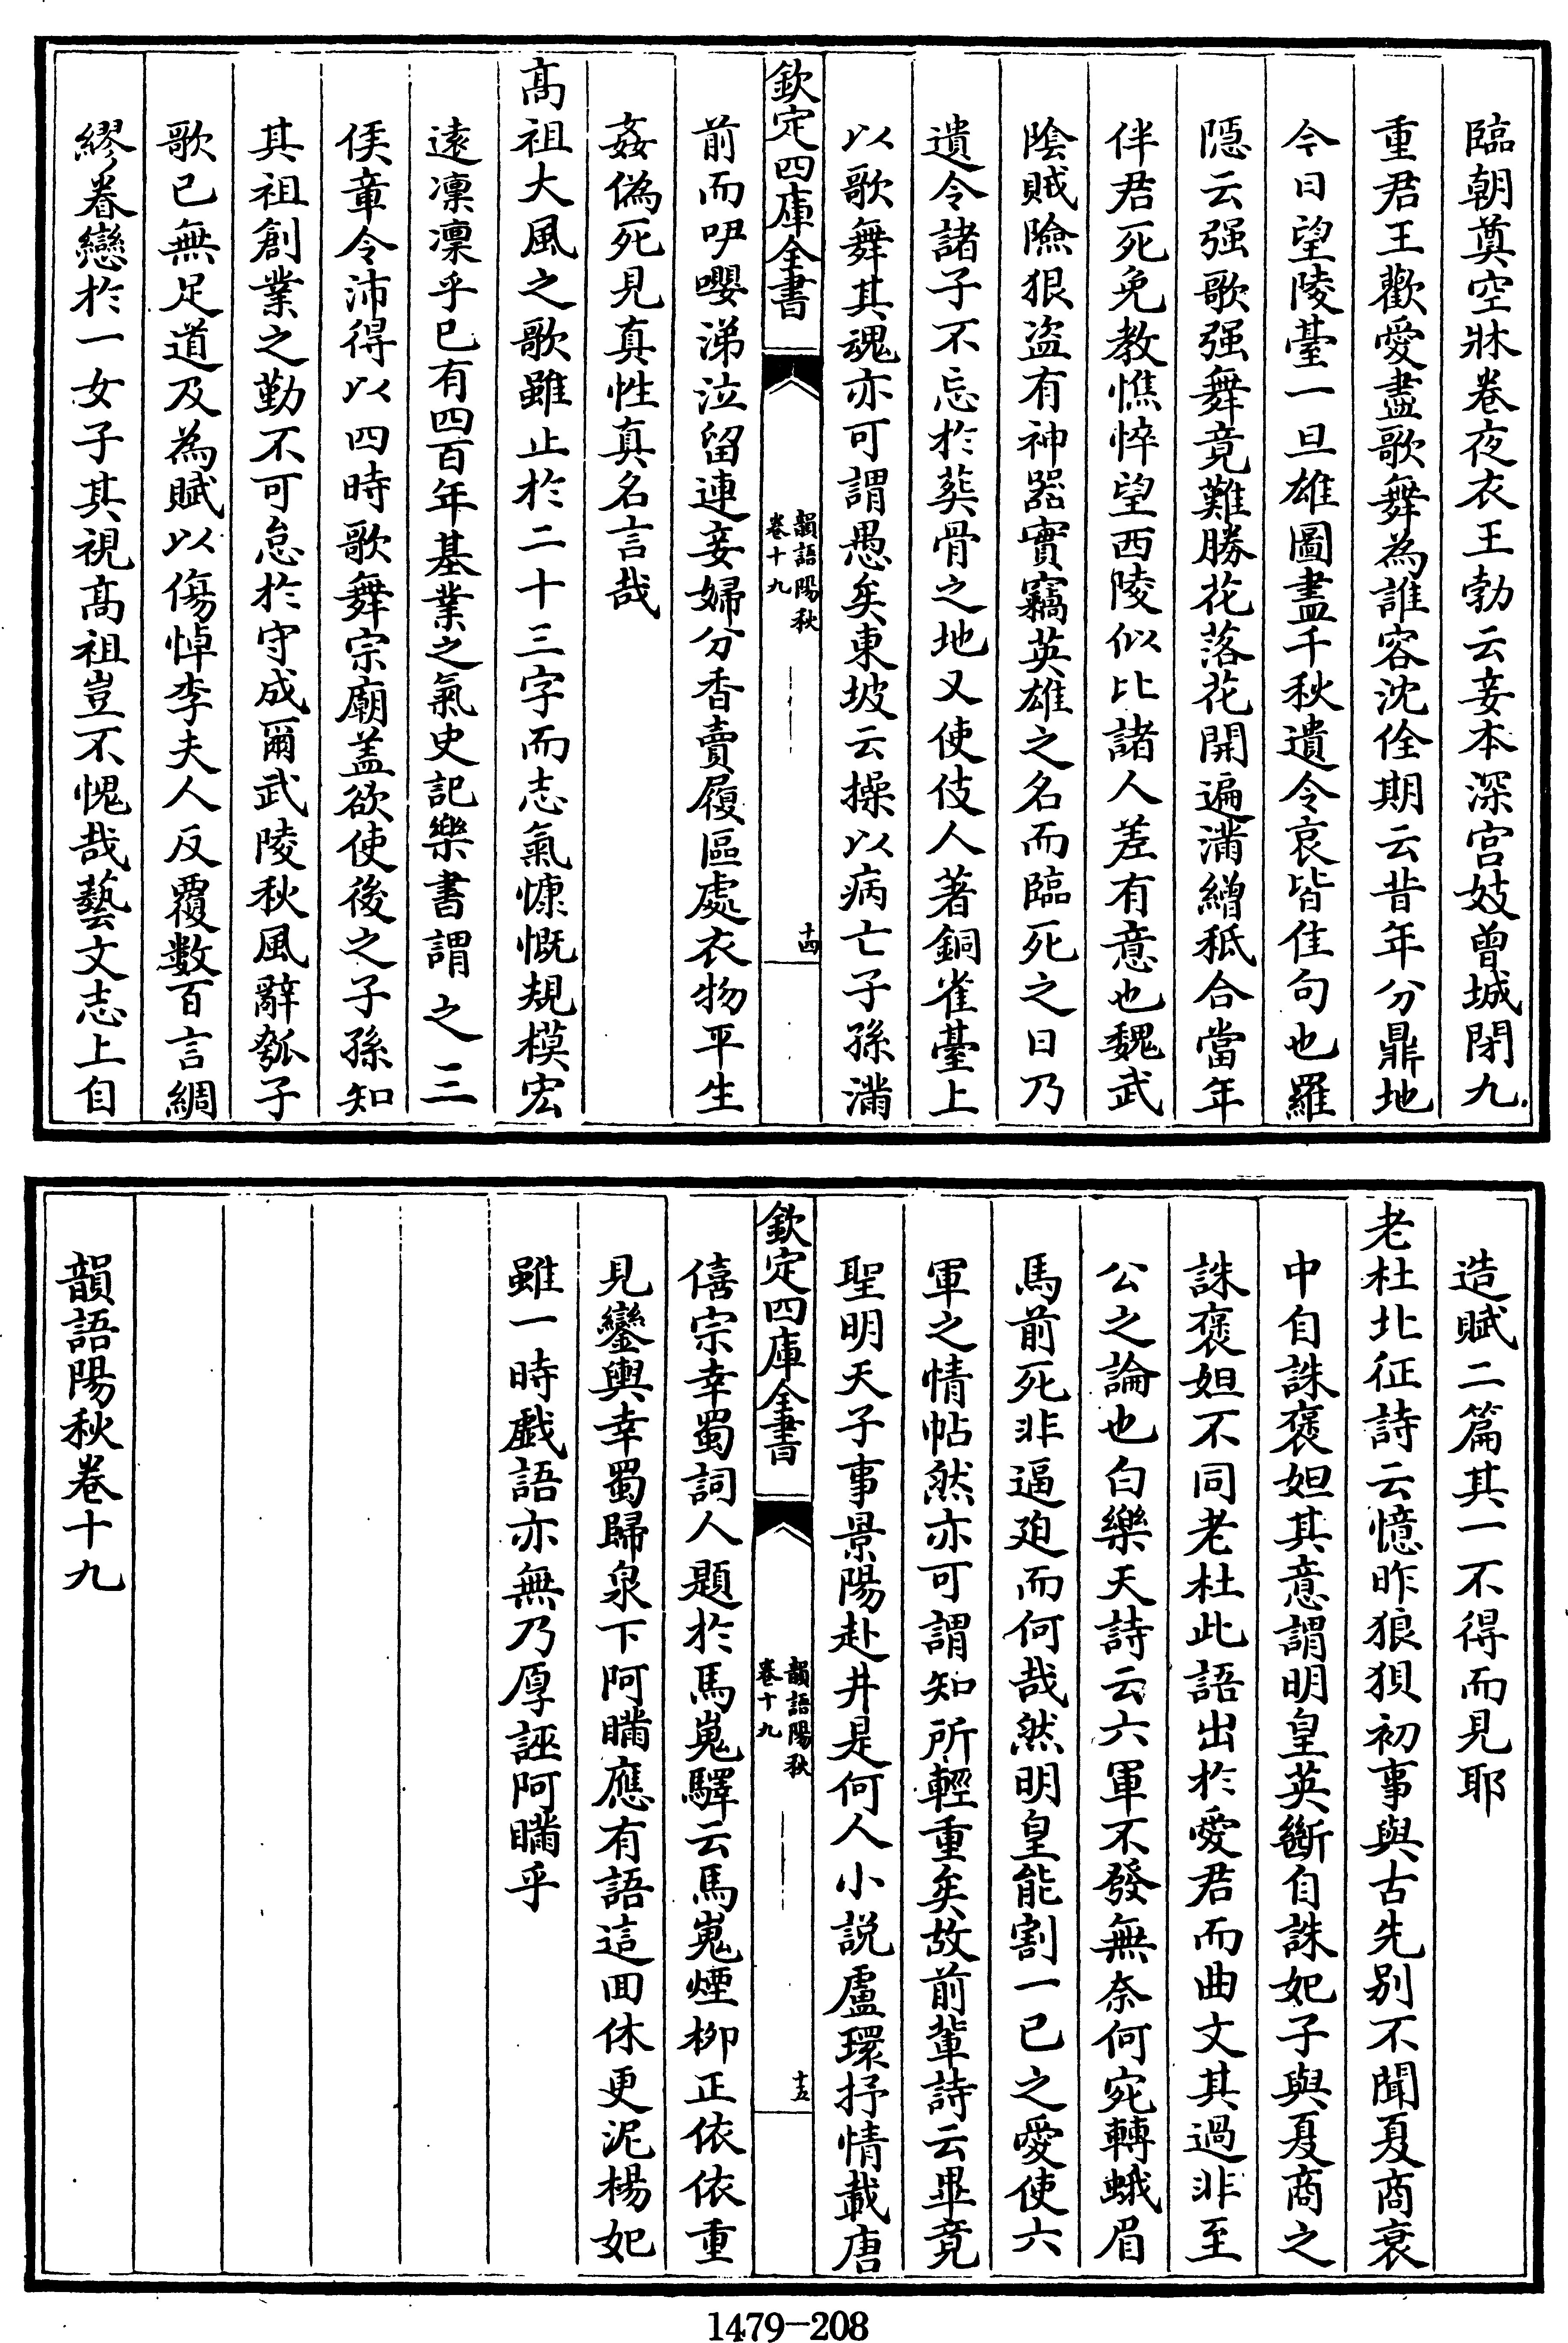 臨朝奠空牀卷夜衣王勃云妾本深宫妓曾城閉九
重君王歡愛盡歌舞為誰容沈佺期云昔年分鼎地
今日望陵臺一旦雄圖盡千秋遺令哀皆佳句也羅
隱云强歌强舞竟難勝花落花開遍滿繒秪合當年
伴君死免教憔悴望西陵似比諸人差有意也魏武
陰賊險狠盜有神器實竊英雄之名而臨死之日乃
遺令諸子不忘於葬骨之地又使伎人著銅雀臺上
以歌舞其魂亦可謂愚矣東坡云操以病亡子孫滿
欽定四庫全書
韻語陽秋
卷十九
十四
前而咿嚶涕泣留連妾婦分香賣履區處衣物平生
姦偽死見真性真名言哉
髙祖大風之歌雖止於二十三字而志氣慷慨規模宏
遠凜凜乎已有四百年基業之氣史記樂書謂之三
侯章令沛得以四時歌舞宗廟盖欲使後之子孫知
其祖創業之勤不可怠於守成爾武陵秋風辭瓠子
歌已無足道及為賦以傷悼李夫人反覆數百言綢
繆眷戀於一女子其視髙祖豈不愧哉藝文志上自
造賦二篇其一不得而見耶
老杜北征詩云憶昨狼狽初事與古先别不聞夏商衰
中自誅褒妲其意謂明皇英斷自誅妃子與夏商之
誅褒妲不同老杜此語出於愛君而曲文其過非至
公之論也白樂天詩云六軍不發無奈何宛轉蛾眉
馬前死非逼廹而何哉然明皇能割一已之愛使六
軍之情帖然亦可謂知所輕重矣故前輩詩云畢竟
聖明天子事景陽赴井是何人小説盧環抒情載唐
欽定四庫全書
韻語陽秋
卷十九
十五
僖宗幸蜀詞人題於馬嵬驛云馬嵬煙柳正依依重
見鑾輿幸蜀歸泉下阿瞞應有語這回休更泥楊妃
雖一時戲語亦無乃厚誣阿瞞乎
韻語陽秋卷十九
1479-208